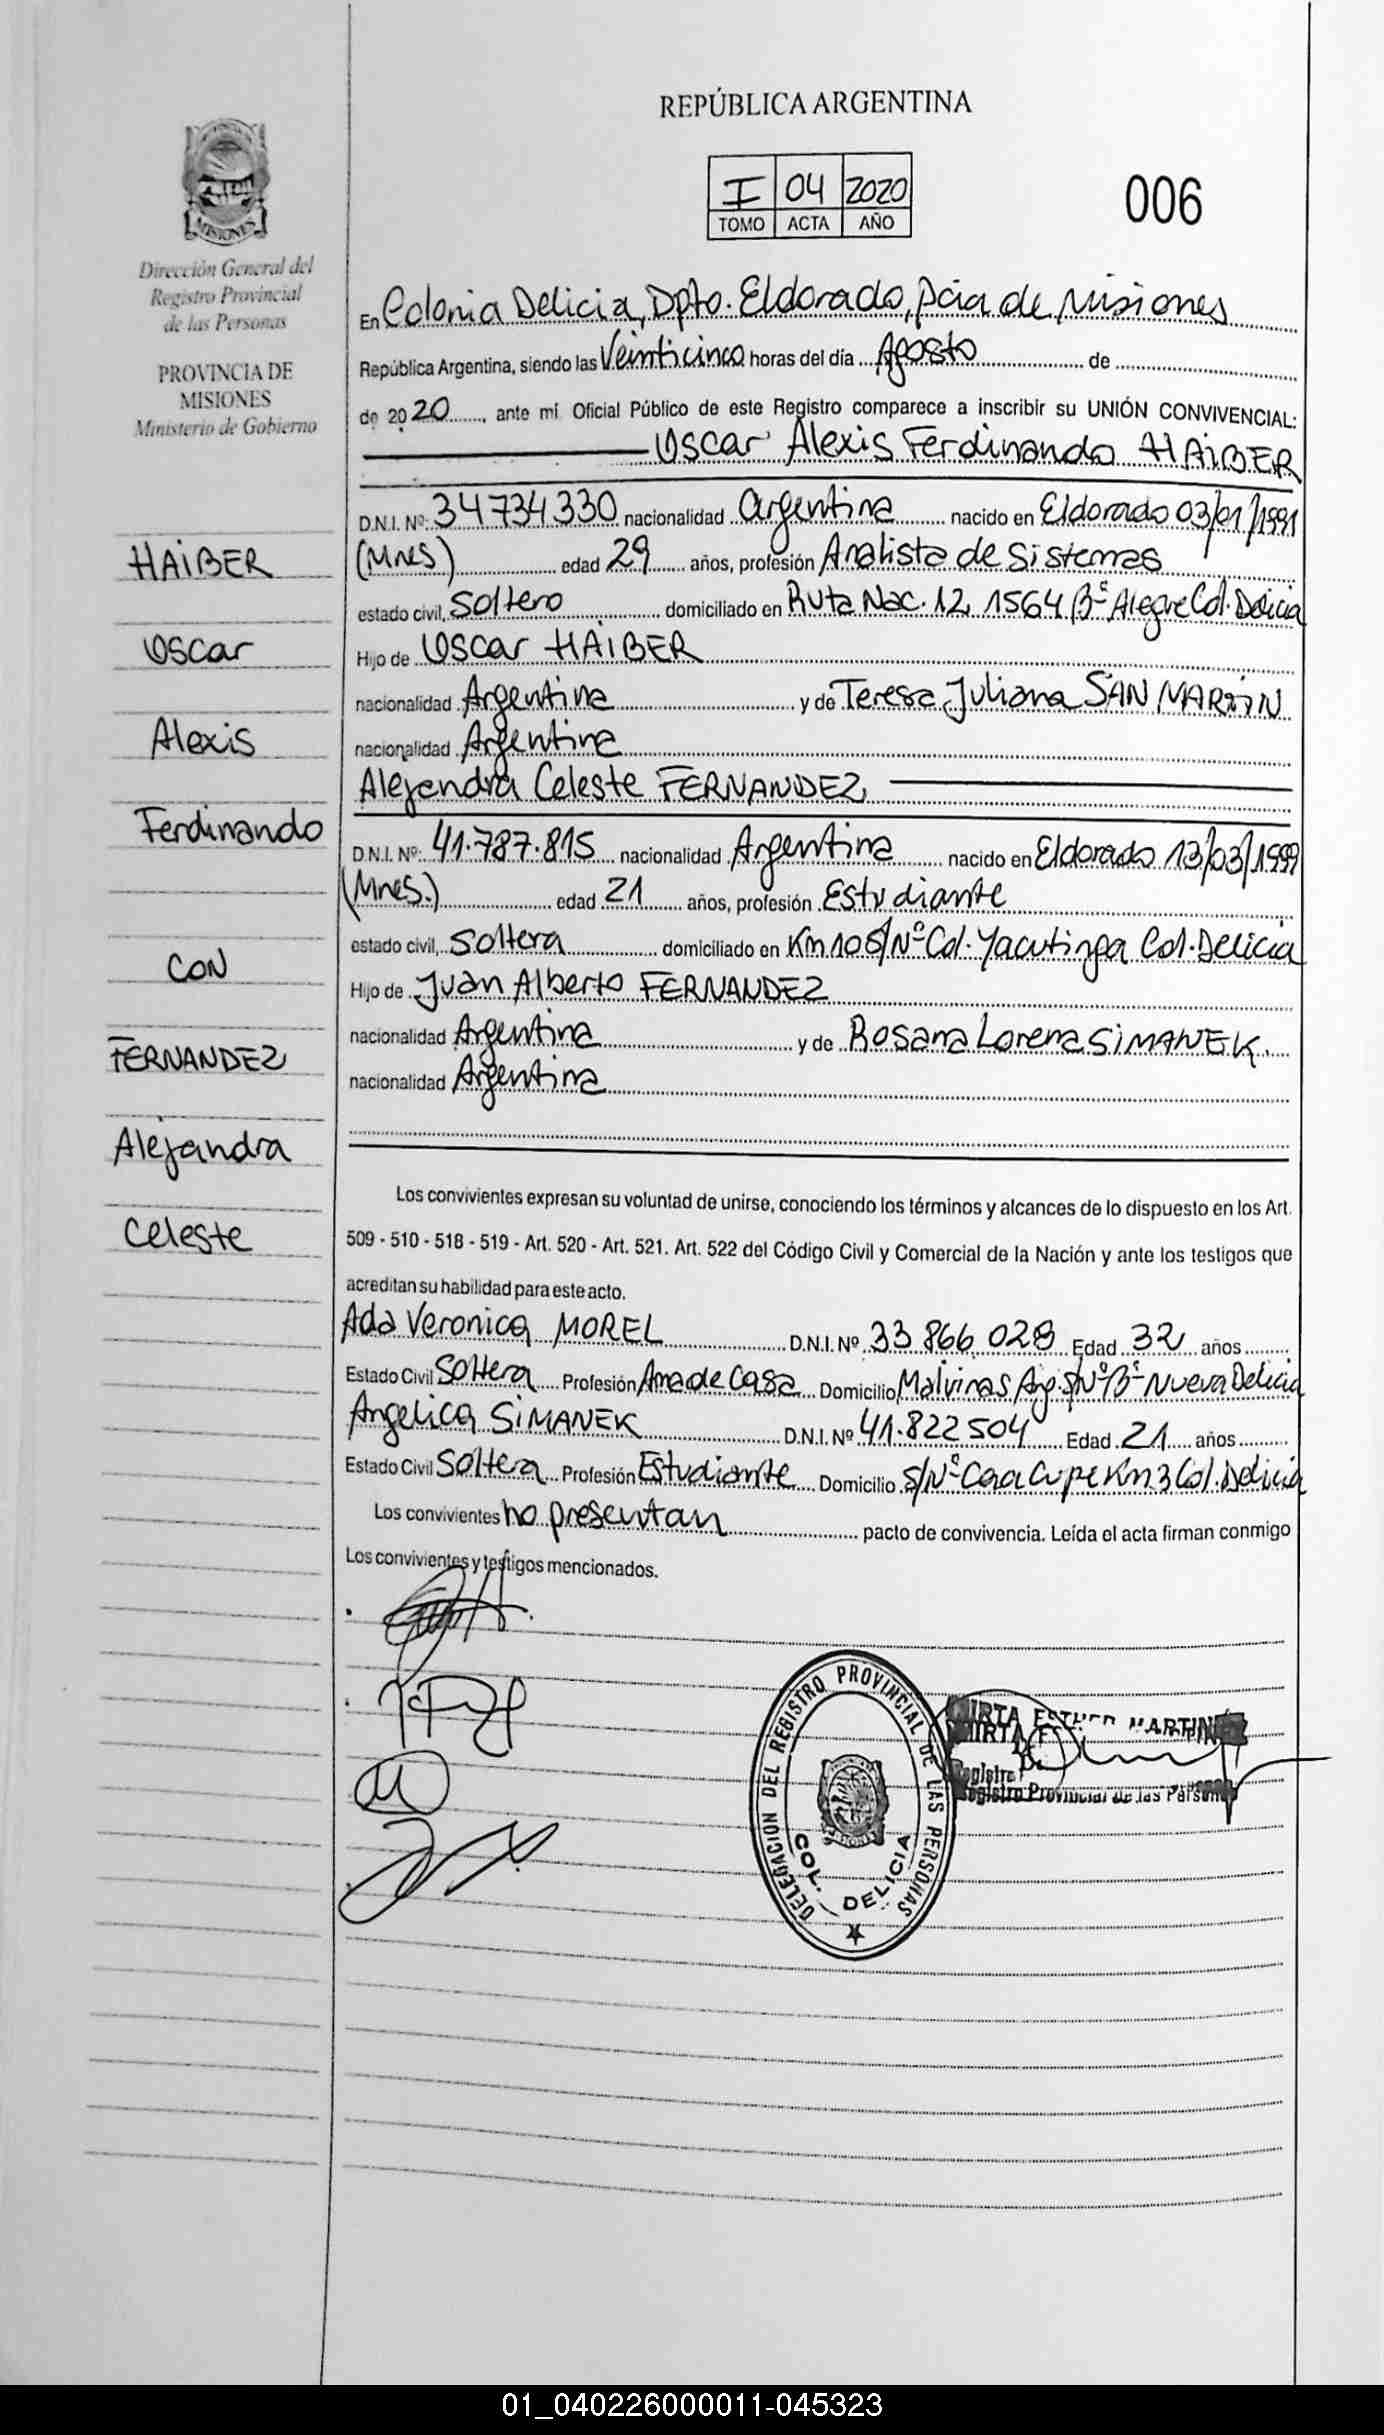 REPÚBLICA ARGENTINA
I 04 2020
TOMO ACTA AÑO
006
MISIONES
Dirección General del
Registro Provincial
de las Personas
PROVINCIA DE
MISIONES
Ministerio de Gobierno
HAIBER
Oscar
Alexis
Ferdinando
CON
FERNANDEZ
Alejandra
Celeste
En Colonia Delicia, Dpto. Eldorado, pcia de Misiones
República Argentina, siendo las Veinticinco horas del día Agosto de
de 2020, ante mi Oficial Público de este Registro comparece a inscribir su UNIÓN CONVIVENCIAL:
Oscar Alexis Ferdinando HAIBER
D.N.I. Nº: 34734330 nacionalidad Argentina nacido en Eldorado 03/01/1991
(Mnes) edad 29 años, profesión Analista de Sistemas
estado civil, Soltero domiciliado en Ruta Nac. 12 1564 Bº Alegre Col. Delicia
Hijo de Oscar HAIBER
nacionalidad Argentina y de Teresa Juliana SAN MARTIN
nacionalidad Argentina
Alejandra Celeste FERNANDEZ
D.N.I. Nº: 41.787.815 nacionalidad Argentina nacido en Eldorado 13/03/1999
(Mnes.) edad 21 años, profesión Estudiante
estado civil, Soltera domiciliado en Km 10 S/Nº Col. Yacutinga Col. Delicia
Hijo de Juan Alberto FERNANDEZ
nacionalidad Argentina y de Rosana Lorena SIMANEK.
nacionalidad Argentina
Los convivientes expresan su voluntad de unirse, conociendo los términos y alcances de lo dispuesto en los Art.
509 - 510 - 518 - 519 - Art. 520 - Art. 521. Art. 522 del Código Civil y Comercial de la Nación y ante los testigos que
acreditan su habilidad para este acto.
Ada Veronica MOREL D.N.I. Nº 33 866 028 Edad 32 años
Estado Civil Soltera Profesión Ama de Casa Domicilio Malvinas Arg. S/Nº Bº Nueva Delicia
Angelica SIMANEK D.N.I. Nº 41.822504 Edad 21 años
Estado Civil Soltera Profesión Estudiante Domicilio S/Nº Caa Cupe Km 3 Col. Delicia
Los convivientes no presentan pacto de convivencia. Leída el acta firman conmigo
Los convivientes y testigos mencionados.
DELEGACION DEL REGISTRO PROVINCIAL DE LAS PERSONAS
COL. DELICIA
MIRTA ESTHER MARTINEZ
Registro Provincial de las Personas
01_040226000011-045323